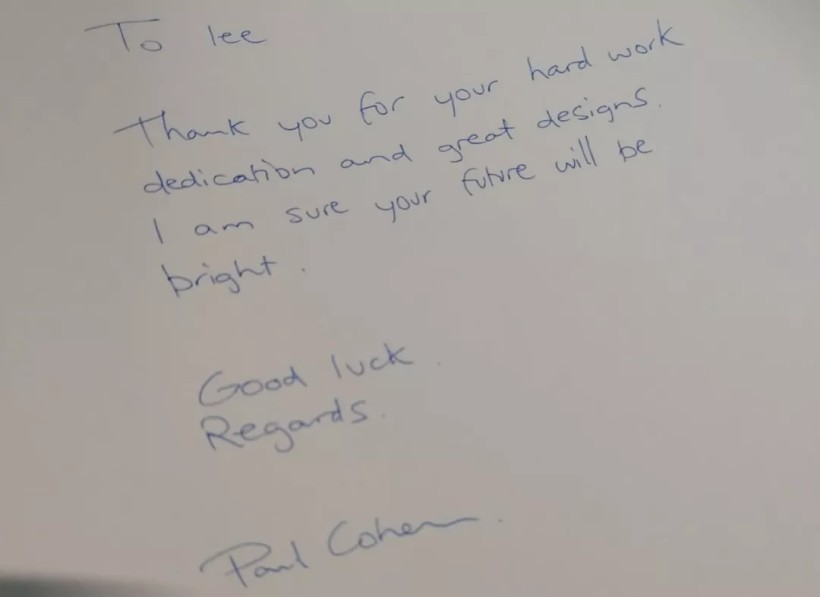 To lee
Thank you for your hard work
dedication and great designs.
I am sure your future will be
bright.
Good luck.
Regards.
Paul Cohen.